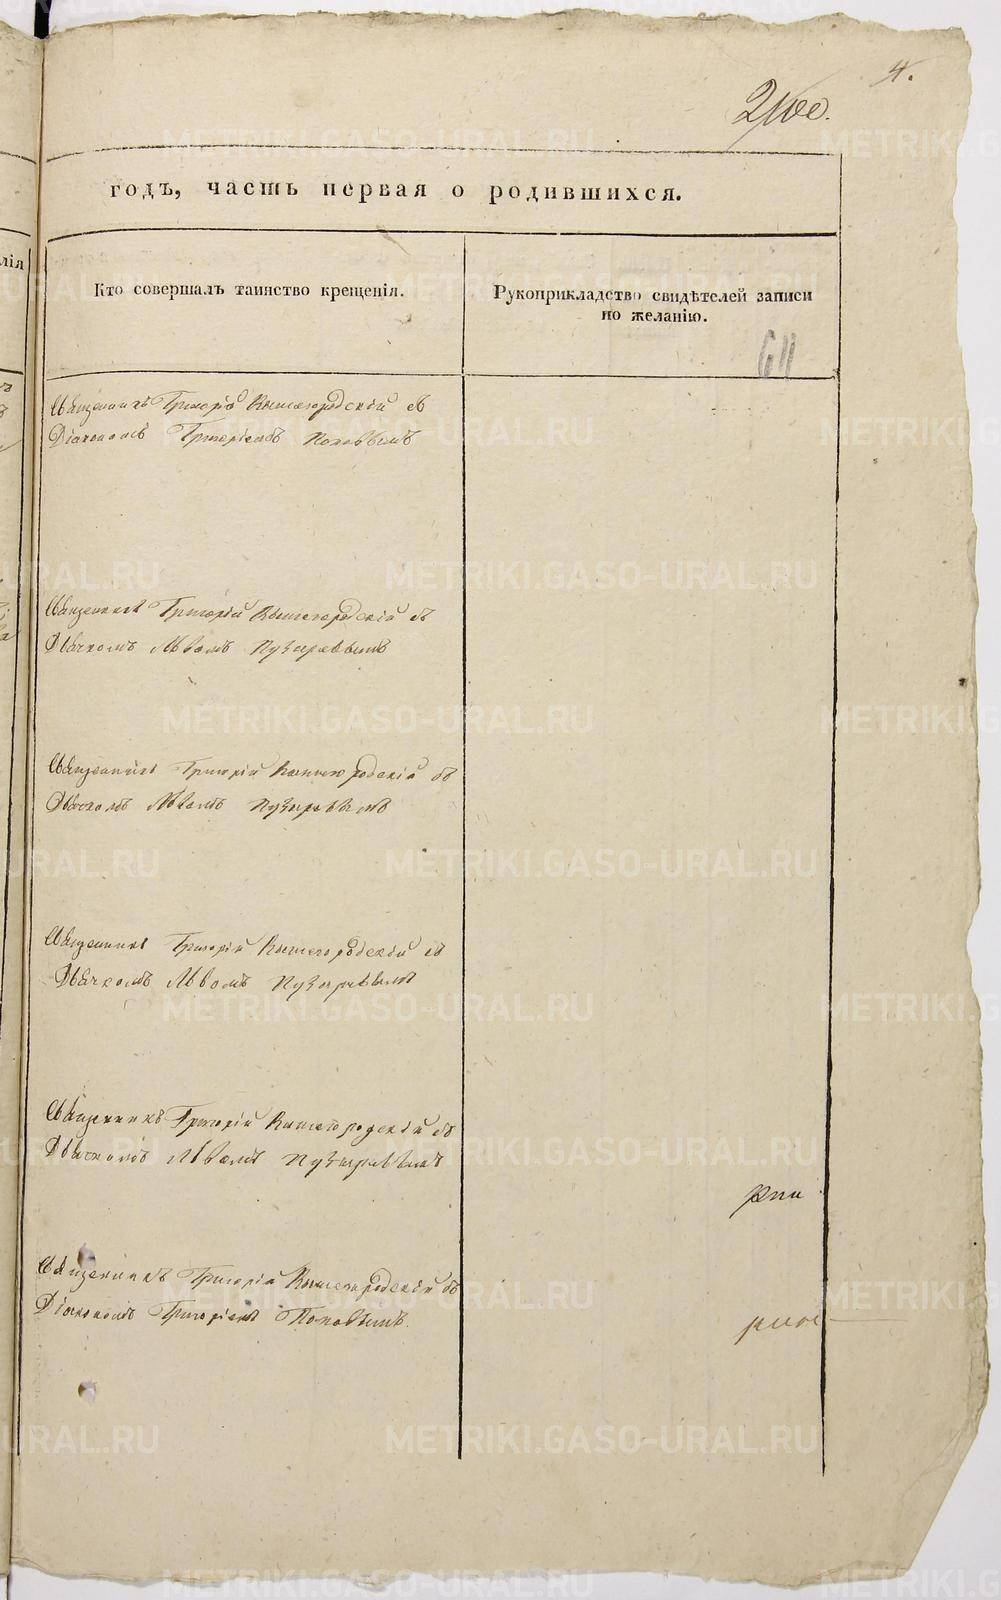 4.
годъ, часть первая о родившихся.
лія
Кто совершалъ таинство крещенія.
Рукоприкладство свидѣтелей записи
по желанію.
Священникъ Григорій Вышегородскій съ
Діакономъ Григоріемъ Поповымъ
Священникъ Григорій Вышегородскій съ
Дьячкомъ Львомъ Пузыревымъ
Священникъ Григорій Вышегородскій съ
Дьячкомъ Львомъ Пузыревымъ
Священникъ Григорій Вышегородскій съ
Дьячкомъ Львомъ Пузыревымъ
Священникъ Григорій Вышегородскій съ
Дьячкомъ Львомъ Пузыревымъ
Священникъ Григорій Вышегородскій съ
Діакономъ Григоріемъ Поповымъ.
METRIKI.GASO-URAL.RU